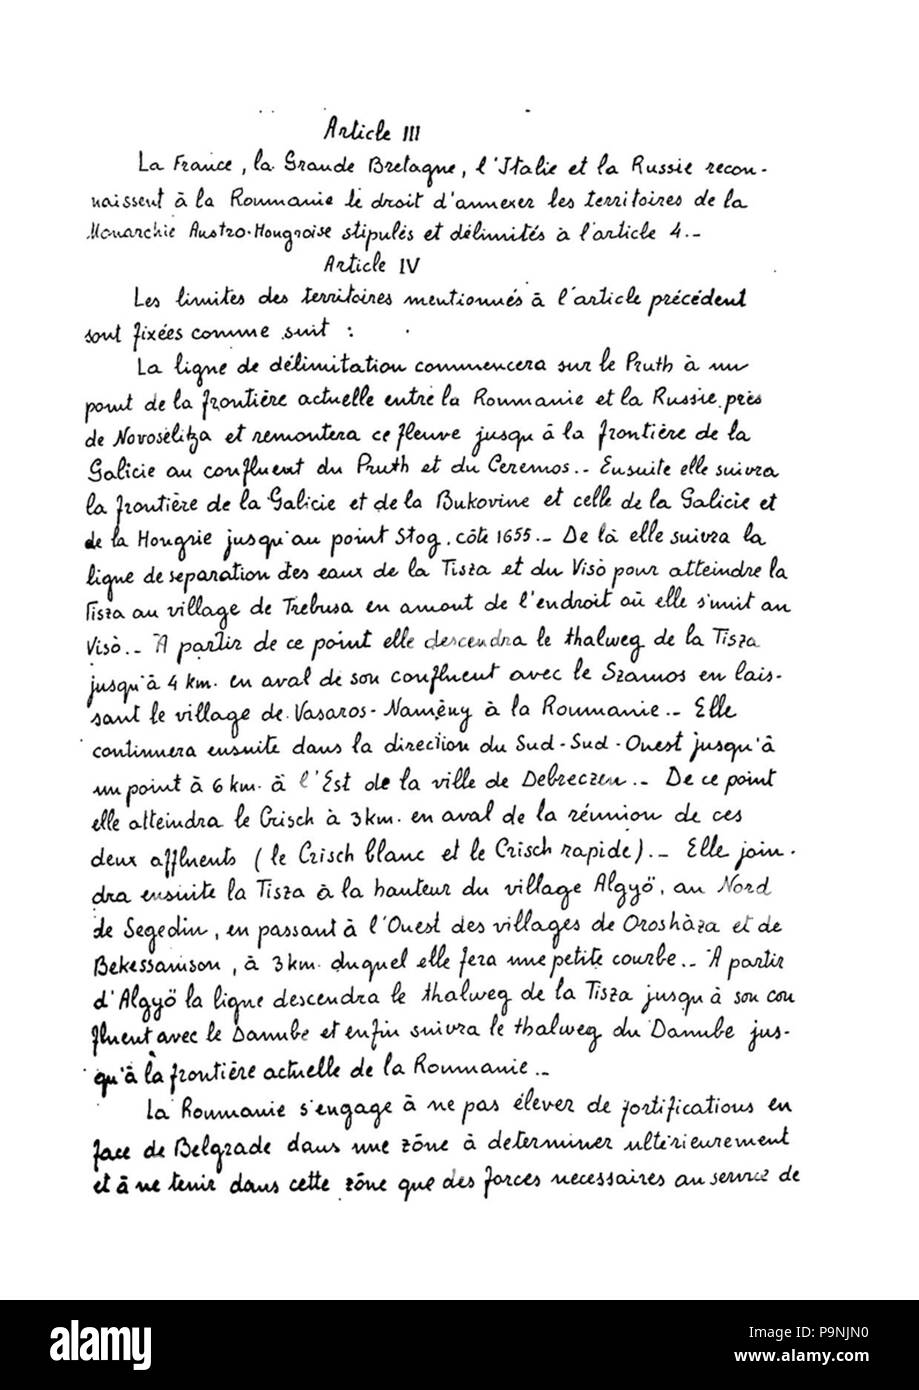 Article III
La France, la Grande Bretagne, l'Italie et la Russie recon-
naissent à la Roumanie le droit d'annexer les territoires de la
Monarchie Austro-Hongroise stipulés et délimités à l'article 4.-
Article IV
Les limites des territoires mentionnés à l'article précédent
sont fixées comme suit :
La ligne de délimitation commencera sur le Pruth à un
point de la frontière actuelle entre la Roumanie et la Russie près
de Novoselitza et remontera ce fleuve jusqu'à la frontière de la
Galicie au confluent du Pruth et du Ceremos.- Ensuite elle suivra
la frontière de la Galicie et de la Bukovine et celle de la Galicie et
de la Hongrie jusqu'au point Stog, côte 1655.- De là elle suivra la
ligne de separation des eaux de la Tisza et du Visò pour atteindre la
Tisza au village de Trebusa en amont de l'endroit où elle s'unit au
Visò.- A partir de ce point elle descendra le thalweg de la Tisza
jusqu'à 4 km. en aval de son confluent avec le Szamos en lais-
sant le village de Vasaros-Namèny à la Roumanie.- Elle
continuera ensuite dans la direction du Sud-Sud-Ouest jusqu'à
un point à 6 km. à l'Est de la ville de Debreczen.- De ce point
elle atteindra le Crisch à 3 km. en aval de la réunion de ces
deux affluents (le Crisch blanc et le Crisch rapide).- Elle join-
dra ensuite la Tisza à la hauteur du village Algyö, au Nord
de Segedin, en passant à l'Ouest des villages de Oroshàza et de
Bekessamson, à 3 km. duquel elle fera une petite courbe.- A partir
d'Algyö la ligne descendra le thalweg de la Tisza jusqu'à son con
fluent avec le Danube et enfin suivra le thalweg du Danube jus-
qu'à la frontière actuelle de la Roumanie.-
La Roumanie s'engage à ne pas élever de fortifications en
face de Belgrade dans une zône à determiner ultérieurement
et à ne tenir dans cette zône que des forces necessaires au service de
alamy
Image ID: P9NJN0
www.alamy.com